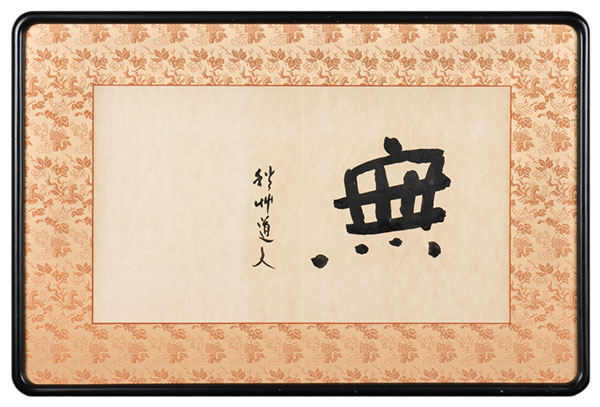 無
秋艸道人